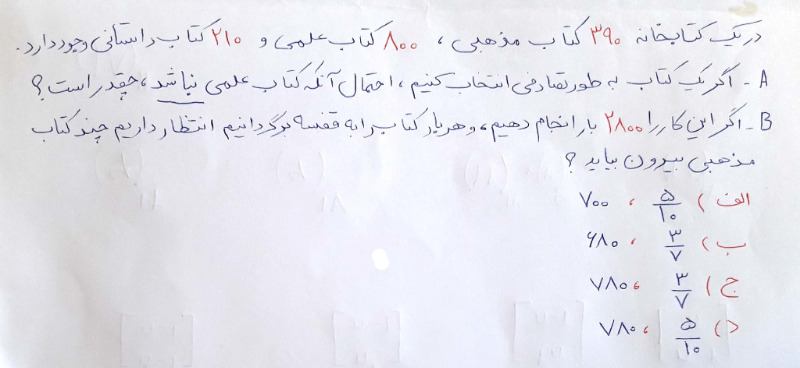 در یک کتابخانه ۳۹۰ کتاب مذهبی ، ۸۰۰ کتاب علمی و ۲۱۰ کتاب داستانی وجود دارد.
A - اگر یک کتاب به طور تصادفی انتخاب کنیم ، احتمال آنکه کتاب علمی نباشد ، چقدر است؟
B - اگر این کار را ۲۸۰۰ بار انجام دهیم ، و هر بار کتاب را به قفسه برگردانیم انتظار داریم چند کتاب
مذهبی بیرون بیاید ؟
الف ) ۵/۱۰ ، ۷۰۰
ب ) ۳/۷ ، ۶۸۰
ج ) ۳/۷ ، ۷۸۰
د ) ۵/۱۰ ، ۷۸۰